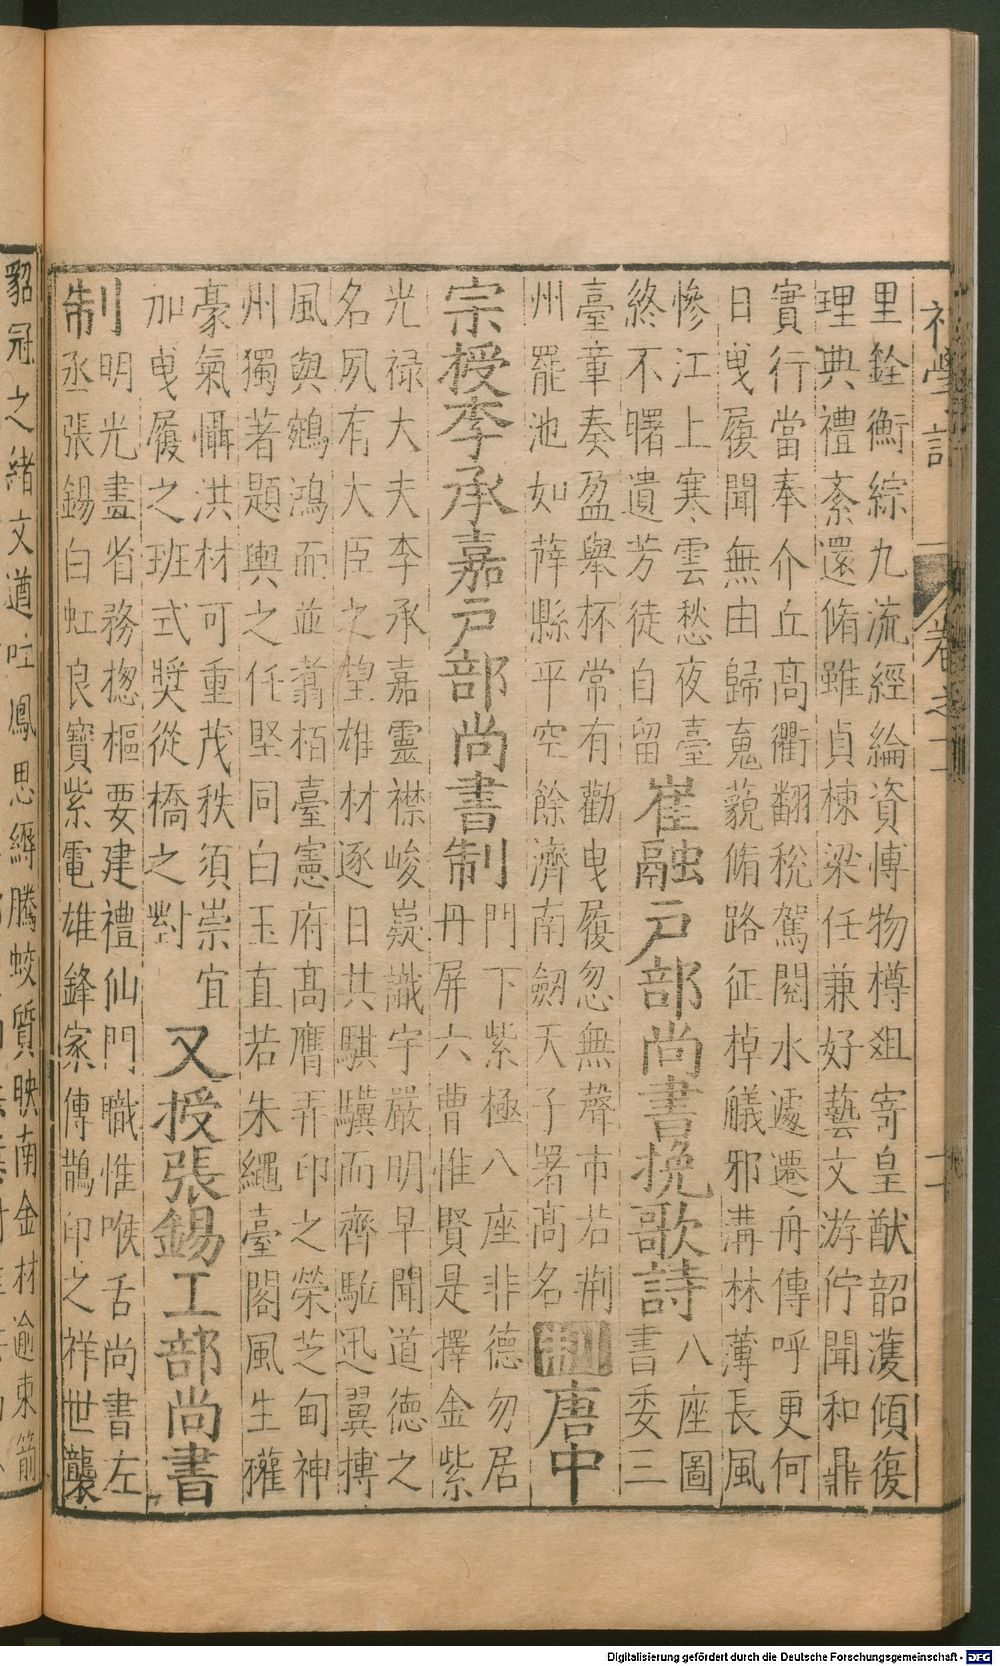 里銓衡綜九流經綸資博物樽俎寄皇猷韶濩傾復
理典禮紊還脩雖貞棟梁任兼好藝文游佇聞和鼎
實行當奉介丘高衢翻稅駕閱水遽遷舟傳呼更何
日曳履聞無由歸䰟藐脩路征棹艤邪溝林薄長風
慘江上寒雲愁夜臺
終不曙遺芳徒自留
崔融戶部尚書挽歌詩
八座圖
書委三
臺章奏盈舉杯常有勸曳履忽無聲市若荆
州罷池如薛縣平空餘濟南劒天子署高名
制
唐中
宗授李承嘉戶部尚書制
門下紫極八座非德勿居
丹屏六曹惟賢是擇金紫
光禄大夫李承嘉靈襟峻嶷識宇嚴明早聞道德之
名夙有大臣之望雄材逐日共騏驥而齊駈迅翼摶
風與鵷鴻而並翥栢臺憲府髙膺弄印之榮芝甸神
州獨著題輿之任堅同白玉直若朱繩臺閣風生權
豪氣懾洪材可重茂秩須崇宜
加曳履之班式獎從橋之對
又授張錫工部尚書
制
明光畫省務揔樞要建禮仙門職惟喉舌尚書左
丞張錫白虹良寶紫電雄鋒家傳鵲印之祥世襲
貂冠之緒文遒吐鳳思縟騰蛟質映南金材逾東箭
Digitalisierung gefördert durch die Deutsche Forschungsgemeinschaft - DFG